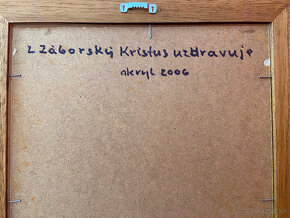 L Záborský Kristus uzdravuje
akryl 2006